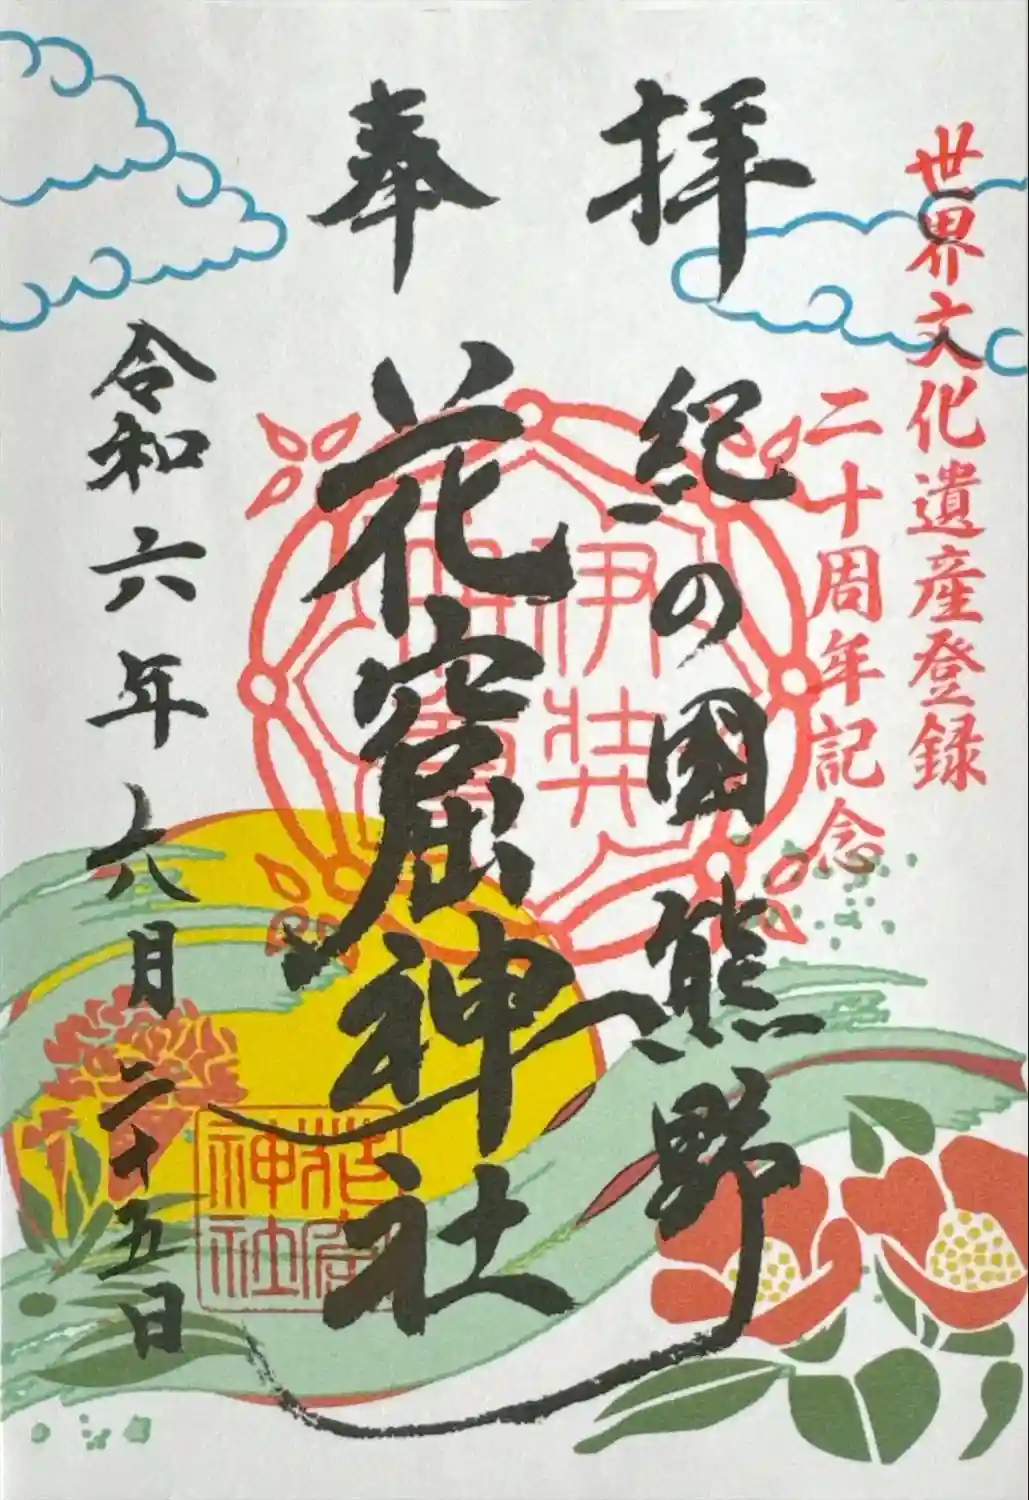 世界文化遺産登録
二十周年記念
奉拝
紀の国熊野
花窟神社
令和六年六月二十五日
花窟
神社